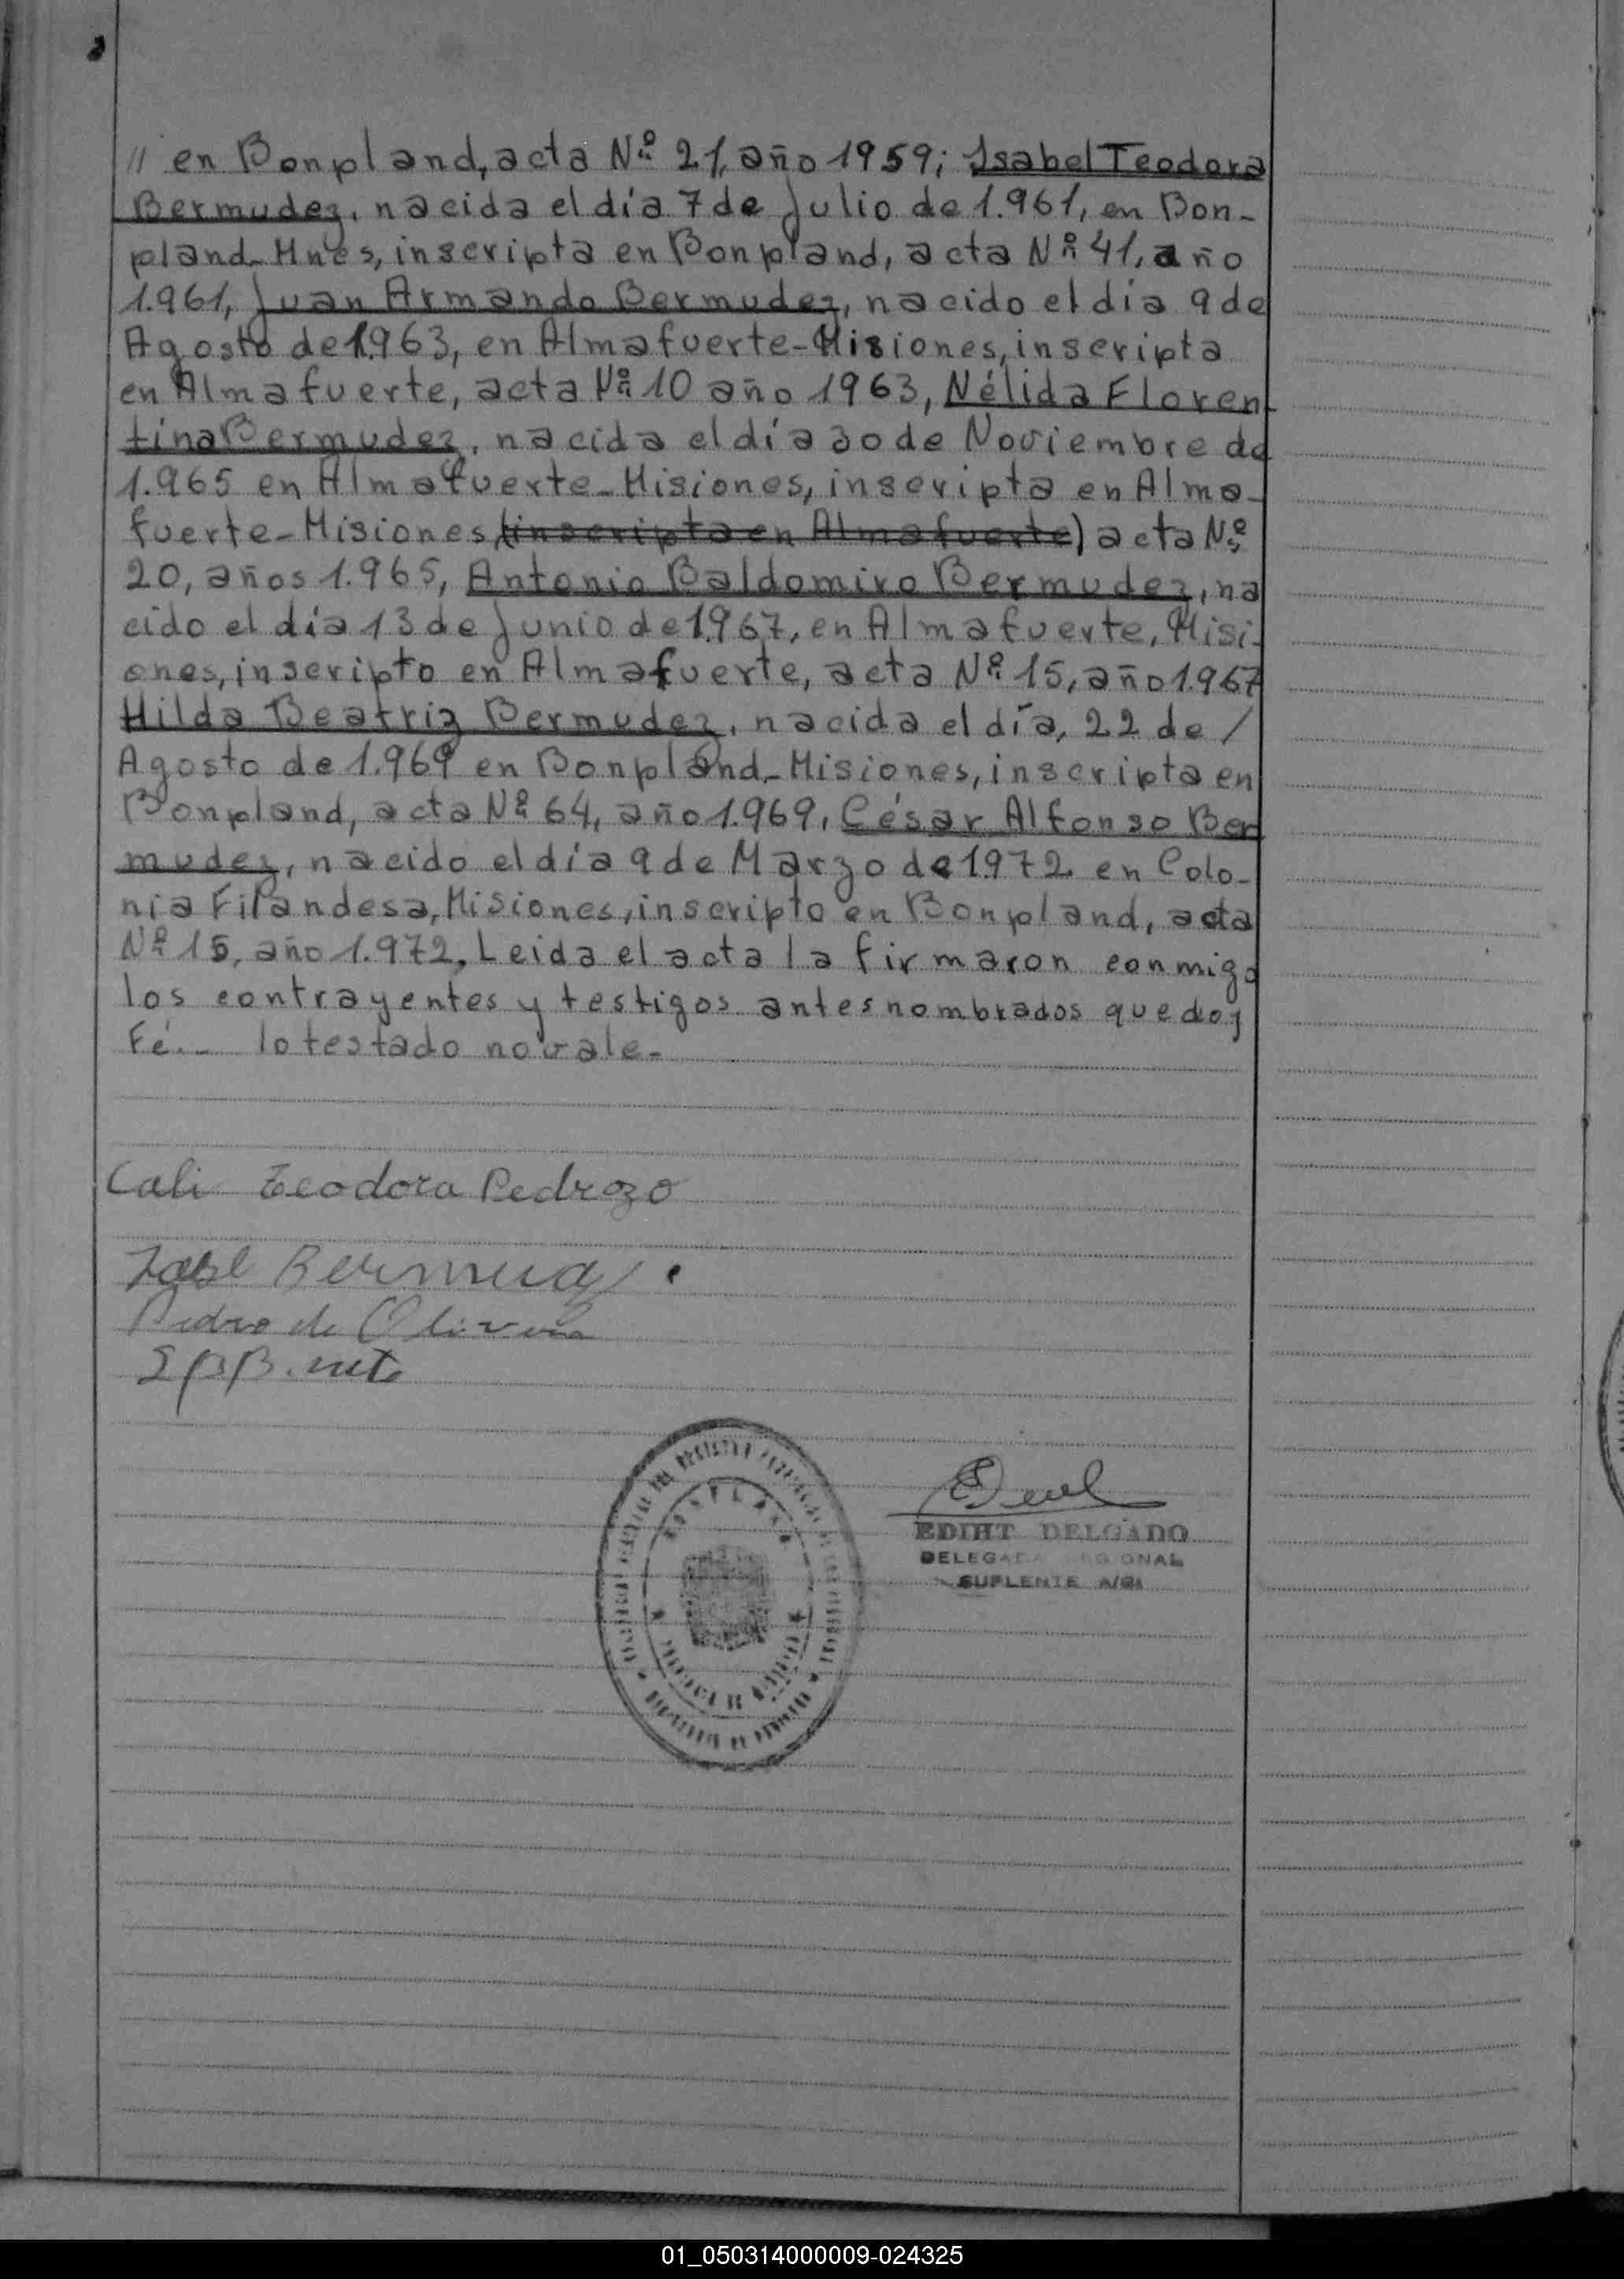 // en Bonpland, acta Nº 21, año 1959; Isabel Teodora
Bermudez, nacida el día 7 de Julio de 1.961, en Bon-
pland-Mnes, inscripta en Bonpland, acta Nº 41, año
1.961, Juan Armando Bermudez, nacido el día 9 de
Agosto de 1.963, en Almafuerte-Misiones, inscripta
en Almafuerte, acta Nº 10 año 1963, Nélida Floren
tina Bermudez, nacida el día 30 de Noviembre de
1.965 en Almafuerte-Misiones, inscripta en Alma-
fuerte-Misiones, (inscripta en Almafuerte) acta Nº
20, años 1.965, Antonio Baldomiro Bermudez, na
cido el día 13 de Junio de 1.967, en Almafuerte, Misi-
ones, inscripto en Almafuerte, acta Nº 15, año 1.967
Hilda Beatriz Bermudez, nacida el día, 22 de /
Agosto de 1.969 en Bonpland-Misiones, inscripta en
Bonpland, acta Nº 64, año 1.969, César Alfonso Ber
mudez, nacido el día 9 de Marzo de 1.972 en Colo-
nia Filandesa, Misiones, inscripto en Bonpland, acta
Nº 15, año 1.972. Leida el acta la firmaron conmigo
los contrayentes y testigos antes nombrados que doy
Fé.- lo testado no vale-
Cali Teodora Pedrozo
José Bermudez
Pedro de Oliveira
EDIHT DELGADO
DELEGADA REGIONAL
SUPLENTE
BONPLAND
01_050314000009-024325